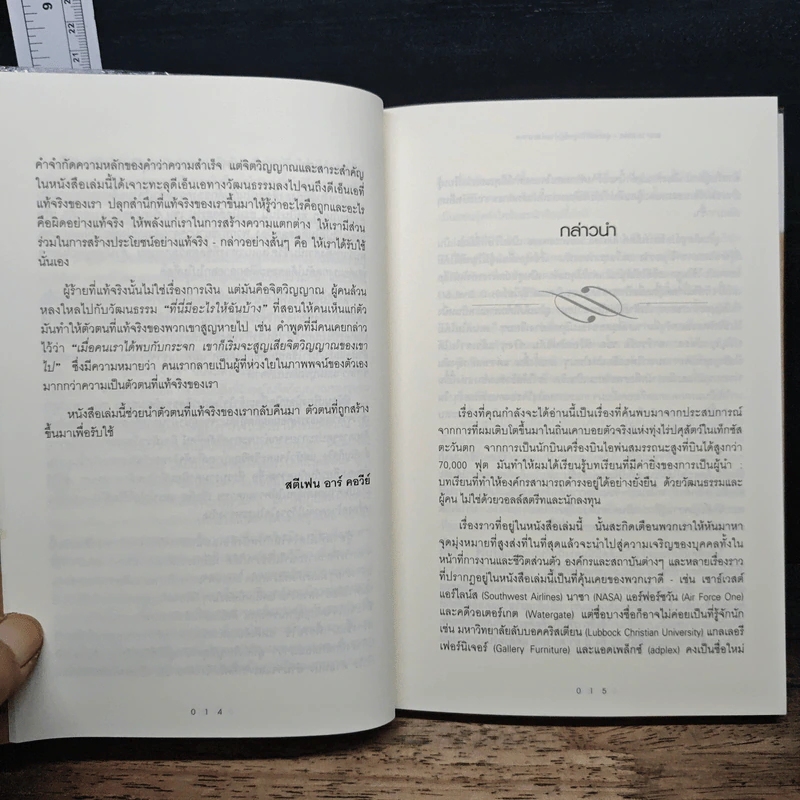 9
22
21
คำจำกัดความหลักของคำว่าความสำเร็จ แต่จิตวิญญาณและสาระสำคัญ
ในหนังสือเล่มนี้ได้เจาะทะลุดีเอ็นเอทางวัฒนธรรมลงไปจนถึงดีเอ็นเอที่
แท้จริงของเรา ปลุกสำนึกที่แท้จริงของเราขึ้นมาให้รู้ว่าอะไรคือถูกและอะไร
คือผิดอย่างแท้จริง ให้พลังแก่เราในการสร้างความแตกต่าง ให้เรามีส่วน
ร่วมในการสร้างประโยชน์อย่างแท้จริง - กล่าวอย่างสั้นๆ คือ ให้เราได้รับใช้
นั่นเอง
ผู้ร้ายที่แท้จริงนั้นไม่ใช่เรื่องการเงิน แต่มันคือจิตวิญญาณ ผู้คนล้วน
หลงใหลไปกับวัฒนธรรม "ที่นี่มีอะไรให้ฉันบ้าง" ที่สอนให้คนเห็นแก่ตัว
มันทำให้ตัวตนที่แท้จริงของพวกเขาสูญหายไป เช่น คำพูดที่มีคนเคยกล่าว
ไว้ว่า "เมื่อคนเราได้พบกับกระจก เขาก็เริ่มจะสูญเสียจิตวิญญาณของเขา
ไป" ซึ่งมีความหมายว่า คนเรากลายเป็นผู้ที่ห่วงใยในภาพพจน์ของตัวเอง
มากกว่าความเป็นตัวตนที่แท้จริงของเรา
หนังสือเล่มนี้ช่วยนำตัวตนที่แท้จริงของเรากลับคืนมา ตัวตนที่ถูกสร้าง
ขึ้นมาเพื่อรับใช้
สตีเฟน อาร์ คอวีย์
014
กล่าวนำ
เรื่องที่คุณกำลังจะได้อ่านนี้เป็นเรื่องที่ค้นพบมาจากประสบการณ์
จากการที่ผมเติบโตขึ้นมาในถิ่นเคาบอยตัวจริงแห่งทุ่งไร่ปศุสัตว์ในเท็กซัส
ตะวันตก จากการเป็นนักบินเครื่องบินไอพ่นสมรรถนะสูงที่บินได้สูงกว่า
70,000 ฟุต มันทำให้ผมได้เรียนรู้บทเรียนที่มีค่ายิ่งของการเป็นผู้นำ :
บทเรียนที่ทำให้องค์กรสามารถดำรงอยู่ได้อย่างยั่งยืน ด้วยวัฒนธรรมและ
ผู้คน ไม่ใช่ด้วยวอลล์สตรีทและนักลงทุน
เรื่องราวที่อยู่ในหนังสือเล่มนี้ นั้นสะกิดเตือนพวกเราให้หันมาหา
จุดมุ่งหมายที่สูงส่งที่ในที่สุดแล้วจะนำไปสู่ความเจริญของบุคคลทั้งใน
หน้าที่การงานและชีวิตส่วนตัว องค์กรและสถาบันต่างๆ และหลายเรื่องราว
ที่ปรากฏอยู่ในหนังสือเล่มนี้เป็นที่คุ้นเคยของพวกเราดี - เช่น เซาธ์เวสต์
แอร์ไลน์ส (Southwest Airlines) นาซา (NASA) แอร์ฟอร์ซวัน (Air Force One)
และคดีวอเตอร์เกต (Watergate) แต่ชื่อบางชื่อก็อาจไม่ค่อยเป็นที่รู้จักนัก
เช่น มหาวิทยาลัยลับบอคคริสเตียน (Lubbock Christian University) แกลเลอรี
เฟอร์นิเจอร์ (Gallery Furniture) และแอดเพล็กซ์ (adplex) คงเป็นชื่อใหม่
015